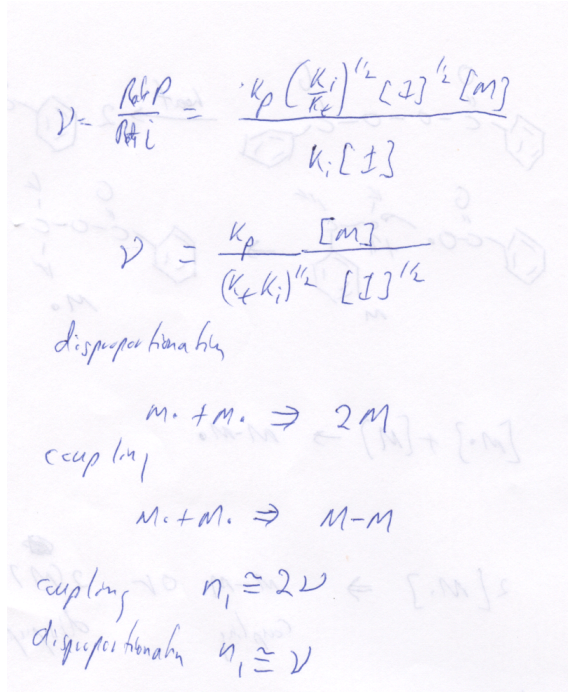 ν = Rate P / Rate i = K_p (K_i/K_t)^1/2 [I]^1/2 [M] / K_i [I]
ν = K_p [M] / (K_t K_i)^1/2 [I]^1/2
disproportionation
M· + M· ⇒ 2M
coupling
M· + M· ⇒ M-M
coupling n_1 ≅ 2ν
disproportionatin n_1 ≅ ν